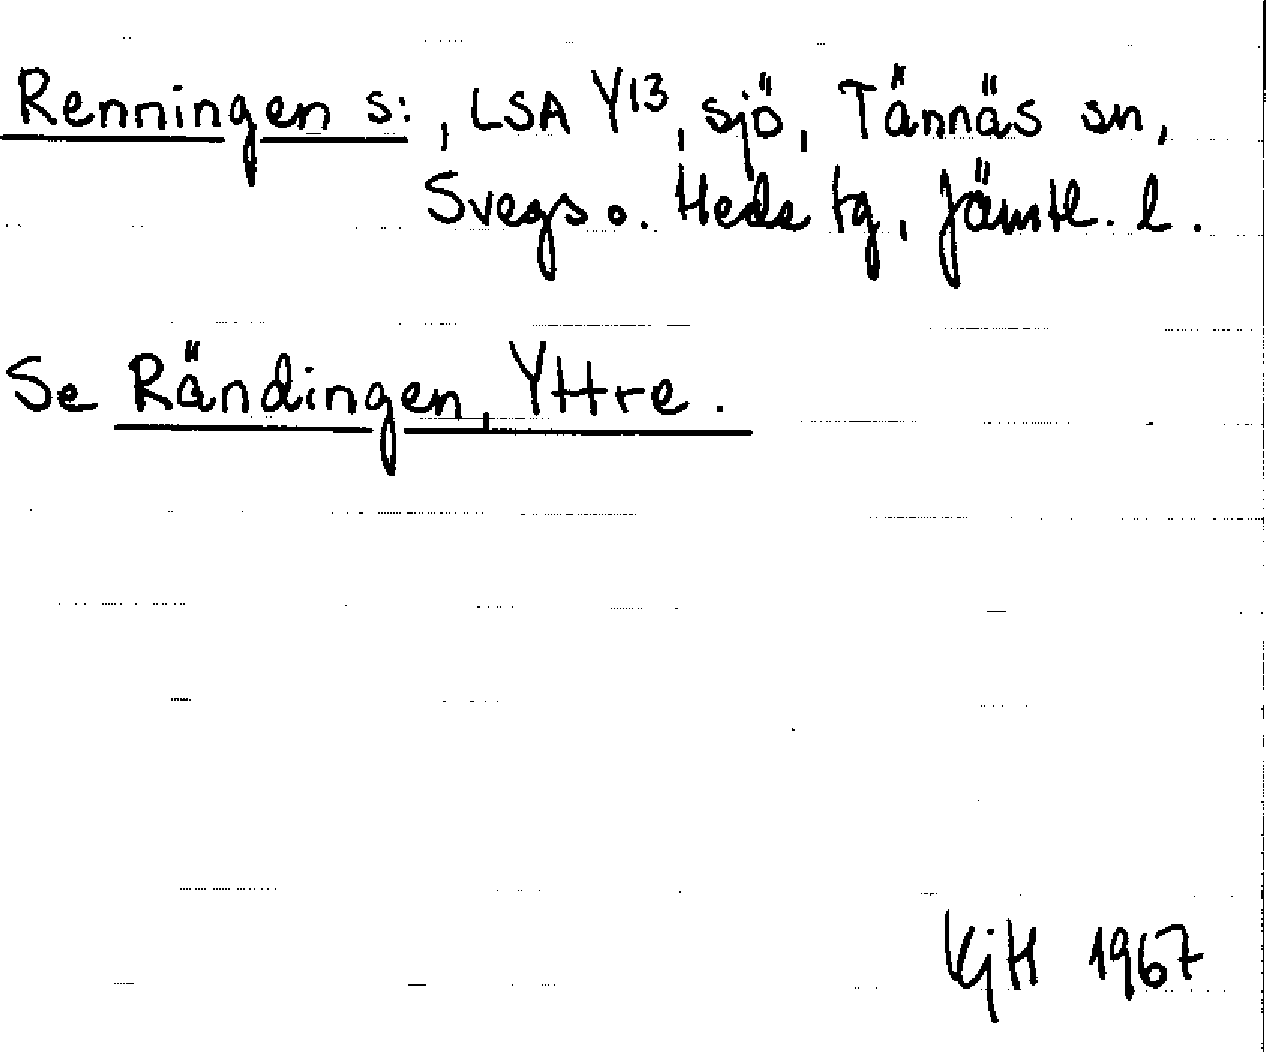 Renningen s:, LSA Y13, sjö, Tännäs sn,
Svegs o. Heds tg, Jämtl. l.
Se Rändingen, Yttre.
KjH 1967